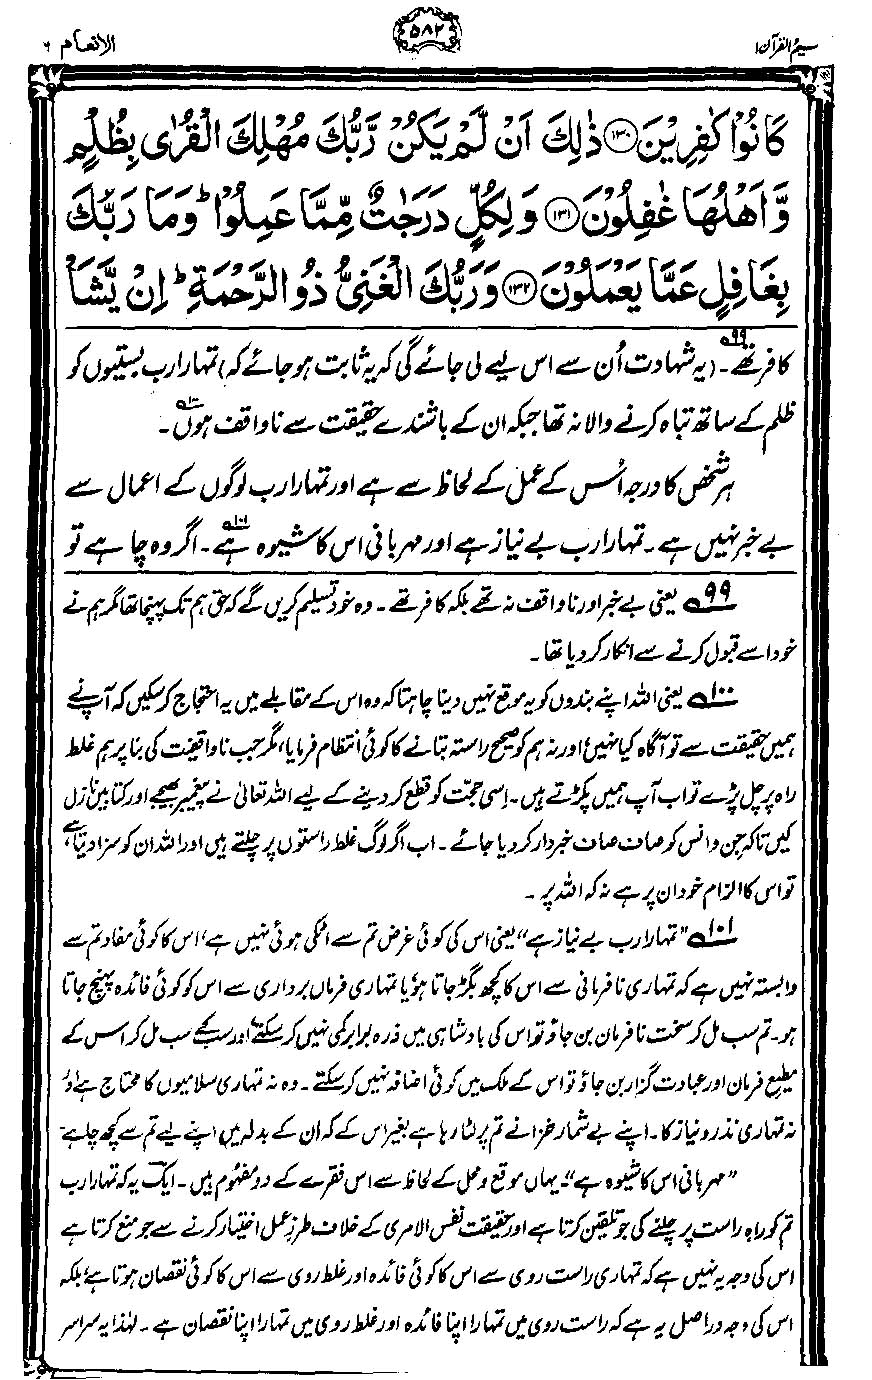 تفہیم القرآن ۱
۵۸۲
الانعام ۶
كَانُوْا كٰفِرِيْنَ ۝۱۳۰ ذٰلِكَ اَنْ لَّمْ يَكُنْ رَّبُّكَ مُهْلِكَ الْقُرٰى بِظُلْمٍ
وَّاَهْلُهَا غٰفِلُوْنَ ۝۱۳۱ وَلِكُلٍّ دَرَجٰتٌ مِّمَّا عَمِلُوْا ؕ وَمَا رَبُّكَ
بِغَافِلٍ عَمَّا يَعْمَلُوْنَ ۝۱۳۲ وَرَبُّكَ الْغَنِيُّ ذُو الرَّحْمَةِ ؕ اِنْ يَّشَاْ
کافر تھے۹۹۔ (یہ شہادت اُن سے اس لیے لی جائے گی کہ یہ ثابت ہو جائے کہ) تمہارا رب بستیوں کو
ظلم کے ساتھ تباہ کرنے والا نہ تھا جبکہ ان کے باشندے حقیقت سے ناواقف ہوں۱۰۰۔
ہر شخص کا درجہ اُس کے عمل کے لحاظ سے ہے اور تمہارا رب لوگوں کے اعمال سے
بے خبر نہیں ہے۔ تمہارا رب بے نیاز ہے اور مہربانی اس کا شیوہ ہے۱۰۱۔ اگر وہ چاہے تو
۹۹ یعنی بے خبر اور ناواقف نہ تھے بلکہ کافر تھے۔ وہ خود تسلیم کریں گے کہ حق ہم تک پہنچا تھا مگر ہم نے
خود اسے قبول کرنے سے انکار کر دیا تھا۔
۱۰۰ یعنی اللہ اپنے بندوں کو یہ موقع نہیں دینا چاہتا کہ وہ اس کے مقابلے میں یہ احتجاج کر سکیں کہ آپ نے
ہمیں حقیقت سے تو آگاہ کیا نہیں، اور نہ ہم کو صحیح راستہ بتانے کا کوئی انتظام فرمایا، مگر جب ناواقفیت کی بنا پر ہم غلط
راہ پر چل پڑے تو اب آپ ہمیں پکڑتے ہیں۔ اسی حجت کو قطع کر دینے کے لیے اللہ تعالیٰ نے پیغمبر بھیجے اور کتابیں نازل
کیں تاکہ جن و انس کو صاف صاف خبردار کر دیا جائے۔ اب اگر لوگ غلط راستوں پر چلتے ہیں اور اللہ ان کو سزا دیتا ہے،
تو اس کا الزام خود ان پر ہے نہ کہ اللہ پر۔
۱۰۱ “تمہارا رب بے نیاز ہے” یعنی اس کی کوئی غرض تم سے اٹکی ہوئی نہیں ہے، اس کا کوئی مفاد تم سے
وابستہ نہیں ہے کہ تمہاری نافرمانی سے اس کا کچھ بگڑ جاتا ہو، یا تمہاری فرماں برداری سے اس کو کوئی فائدہ پہنچ جاتا
ہو۔ تم سب مل کر سخت نافرمان بن جاؤ تو اس کی بادشاہی میں ذرہ برابر کمی نہیں کر سکتے، اور سب کے سب مل کر اس کے
مطیع فرمان اور عبادت گزار بن جاؤ تو اس کے ملک میں کوئی اضافہ نہیں کر سکتے۔ وہ نہ تمہاری سلامیوں کا محتاج ہے اور
نہ تمہاری نذر و نیاز کا۔ اپنے بے شمار خزانے تم پر لٹا رہا ہے بغیر اس کے کہ ان کے بدلہ میں اپنے لیے تم سے کچھ چاہے۔
“مہربانی اس کا شیوہ ہے”۔ یہاں موقع و محل کے لحاظ سے اس فقرے کے دو مفہوم ہیں۔ ایک یہ کہ تمہارا رب
تم کو راہ راست پر چلنے کی جو تلقین کرتا ہے اور حقیقت نفس الامری کے خلاف طرز عمل اختیار کرنے سے جو منع کرتا ہے
اس کی وجہ یہ نہیں ہے کہ تمہاری راست روی سے اس کا کوئی فائدہ اور غلط روی سے اس کا کوئی نقصان ہوتا ہے، بلکہ
اس کی وجہ دراصل یہ ہے کہ راست روی میں تمہارا اپنا فائدہ اور غلط روی میں تمہارا اپنا نقصان ہے۔ لہٰذا یہ سراسر